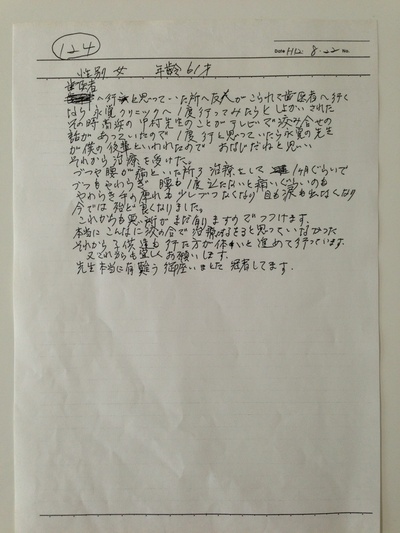 124
Date H12 8.22 No.
性別 女 年齢 61才
歯医者
へ行こと思っていた所へ友人がこられて歯医者へ行く
なら永道クリニックへ1度行ってみたらとしょかいされた
その時高浜の中村先生のことがテレビで咬み合せの
話があっていたので1度行と思っていたら永夏の先生
が僕の後輩といわれたので おなじだねと思い
それから治療を受けた。
づつや腰が痛といた所治療をして 1ヶ月ぐらいで
づつもやわらぎ 腰も1度立たないと痛いぐらいのも
やわらぎ手の痺れも少しづつなくなり目も涙も出なくなり
今では殆ど良くなりました。
これからも悪い所がまだ有りますのでつづけます。
本当にこんなに咬の合で治療なると思っていなかった
それから子供達も行た方が体いいと進めて行っています。
又これからも宜しくお願いします。
先生本当に有難う御座いました 感謝してます。